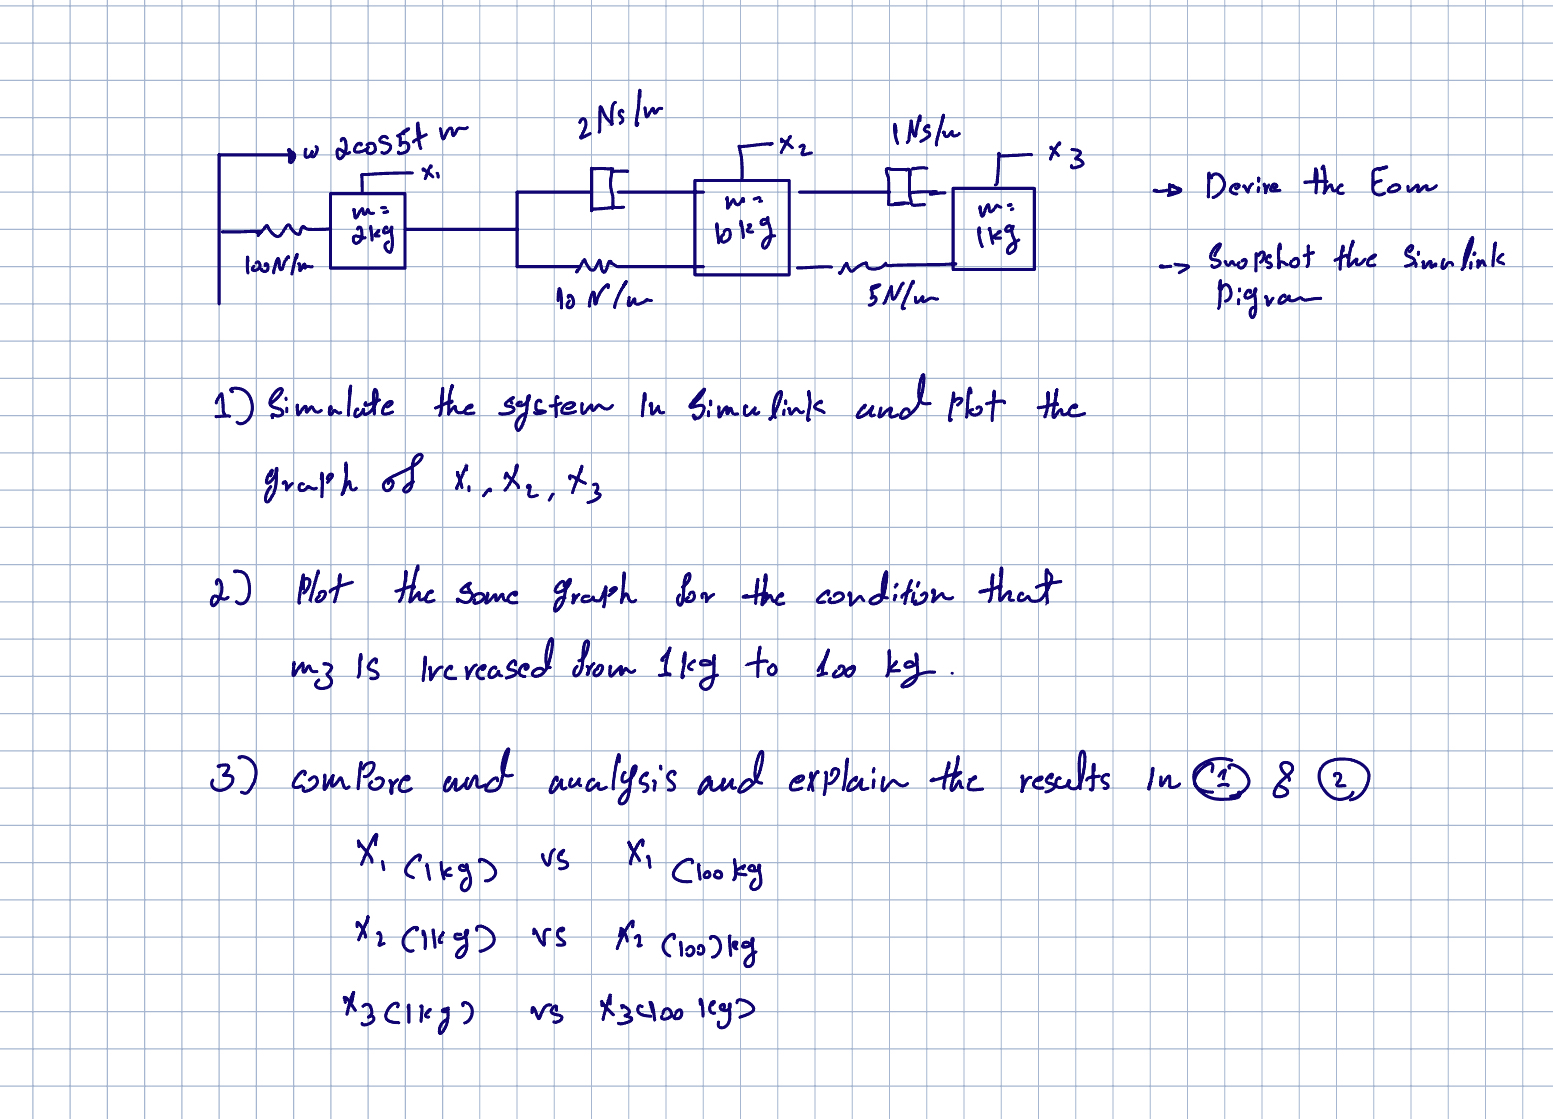 2 Ns/m
1 Ns/m
w 2cos5t m
x₁
x₂
x₃
m=
2kg
m=
10kg
m=
1kg
100N/m
10 N/m
5N/m
→ Derive the Eom
→ Snapshot the Simulink
Digram
1) Simulate the system In Simulink and plot the
graph of X₁, X₂, X₃
2) Plot the same graph for the condition that
m3 Is Increased from 1kg to 100 kg.
3) compare and analysis and explain the results In ① & ②
X₁ (1kg) vs X₁ (100kg
X₂ (1kg) vs X₂ (100)kg
X3(1kg) vs X3(100 kg)